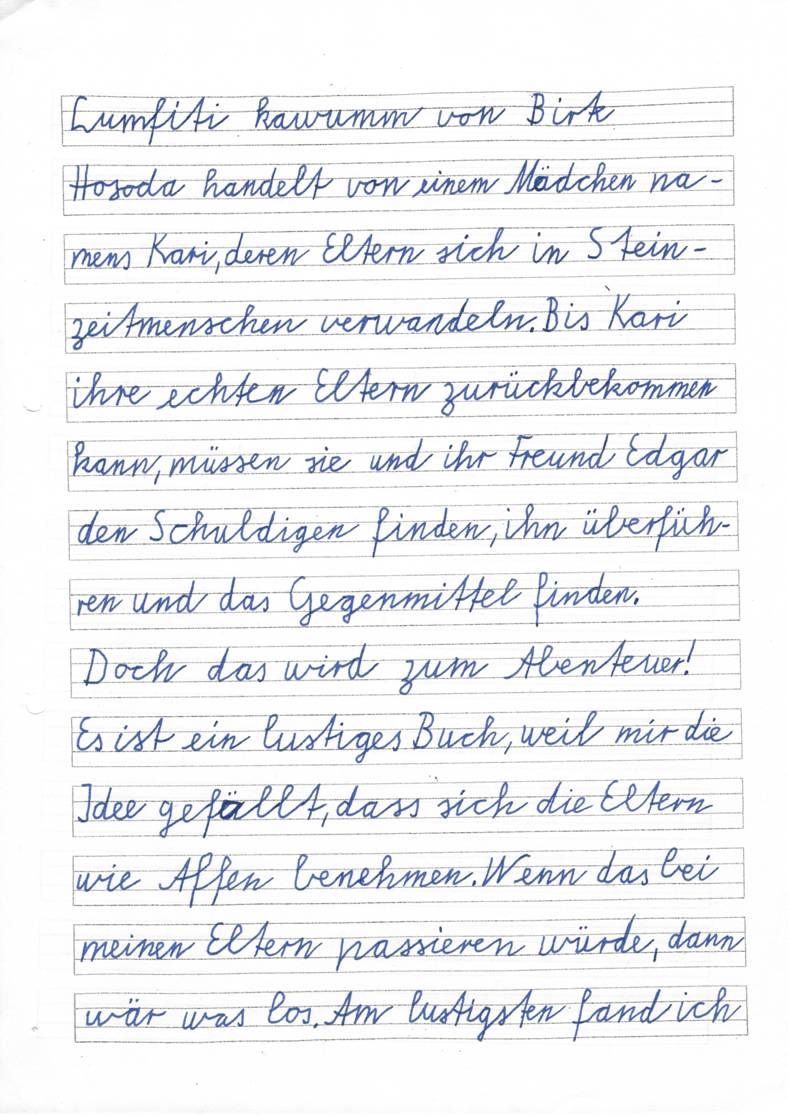 Lumfiti kawumm von Birk
Hosoda handelt von einem Mädchen na-
mens Kari, deren Eltern sich in Stein-
zeitmenschen verwandeln. Bis Kari
ihre echten Eltern zurückbekommen
kann, müssen sie und ihr Freund Edgar
den Schuldigen finden, ihn überfüh-
ren und das Gegenmittel finden.
Doch das wird zum Abenteuer!
Es ist ein lustiges Buch, weil mir die
Idee gefällt, dass sich die Eltern
wie Affen benehmen. Wenn das bei
meinen Eltern passieren würde, dann
wär was los. Am lustigsten fand ich